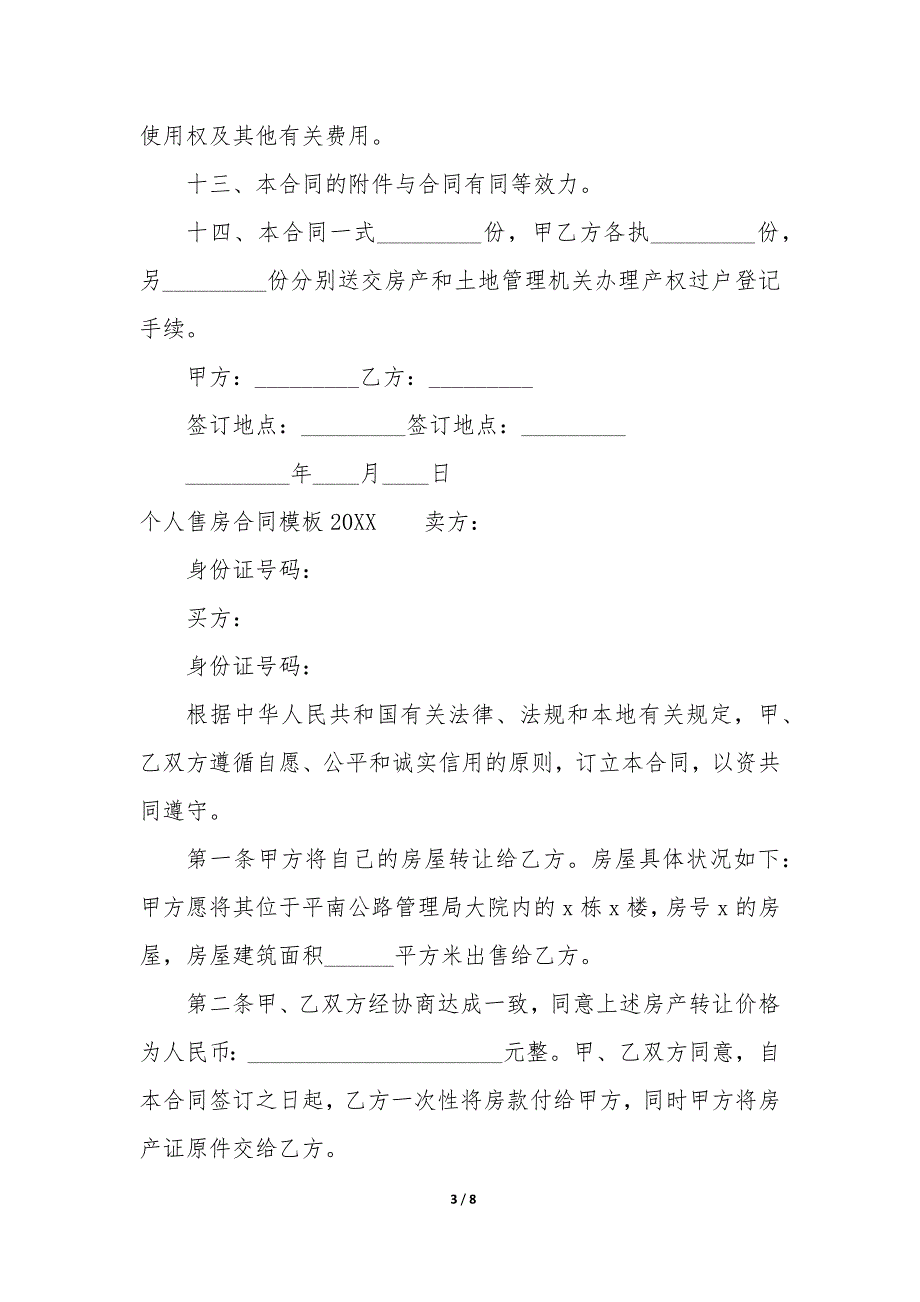 使用权及其他有关费用。
十三、本合同的附件与合同有同等效力。
十四、本合同一式_________份，甲乙方各执_________份，
另_________份分别送交房产和土地管理机关办理产权过户登记
手续。
甲方：_________乙方：_________
签订地点：_________签订地点：_________
_________年____月____日
个人售房合同模板20XX　　卖方：
身份证号码：
买方：
身份证号码：
根据中华人民共和国有关法律、法规和本地有关规定，甲、
乙双方遵循自愿、公平和诚实信用的原则，订立本合同，以资共
同遵守。
第一条甲方将自己的房屋转让给乙方。房屋具体状况如下：
甲方愿将其位于平南公路管理局大院内的x栋x楼，房号x的房
屋，房屋建筑面积______平方米出售给乙方。
第二条甲、乙双方经协商达成一致，同意上述房产转让价格
为人民币：______________________元整。甲、乙双方同意，自
本合同签订之日起，乙方一次性将房款付给甲方，同时甲方将房
产证原件交给乙方。
3 / 8